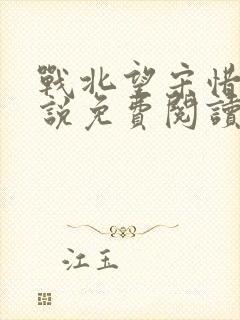 戰北望宋惜
說免費閱讀
江玉